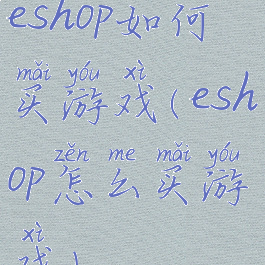 eshop如何
mǎi yóu xì
买游戏(esh
zěn me mǎi yóu
op怎么买游
xì
戏)